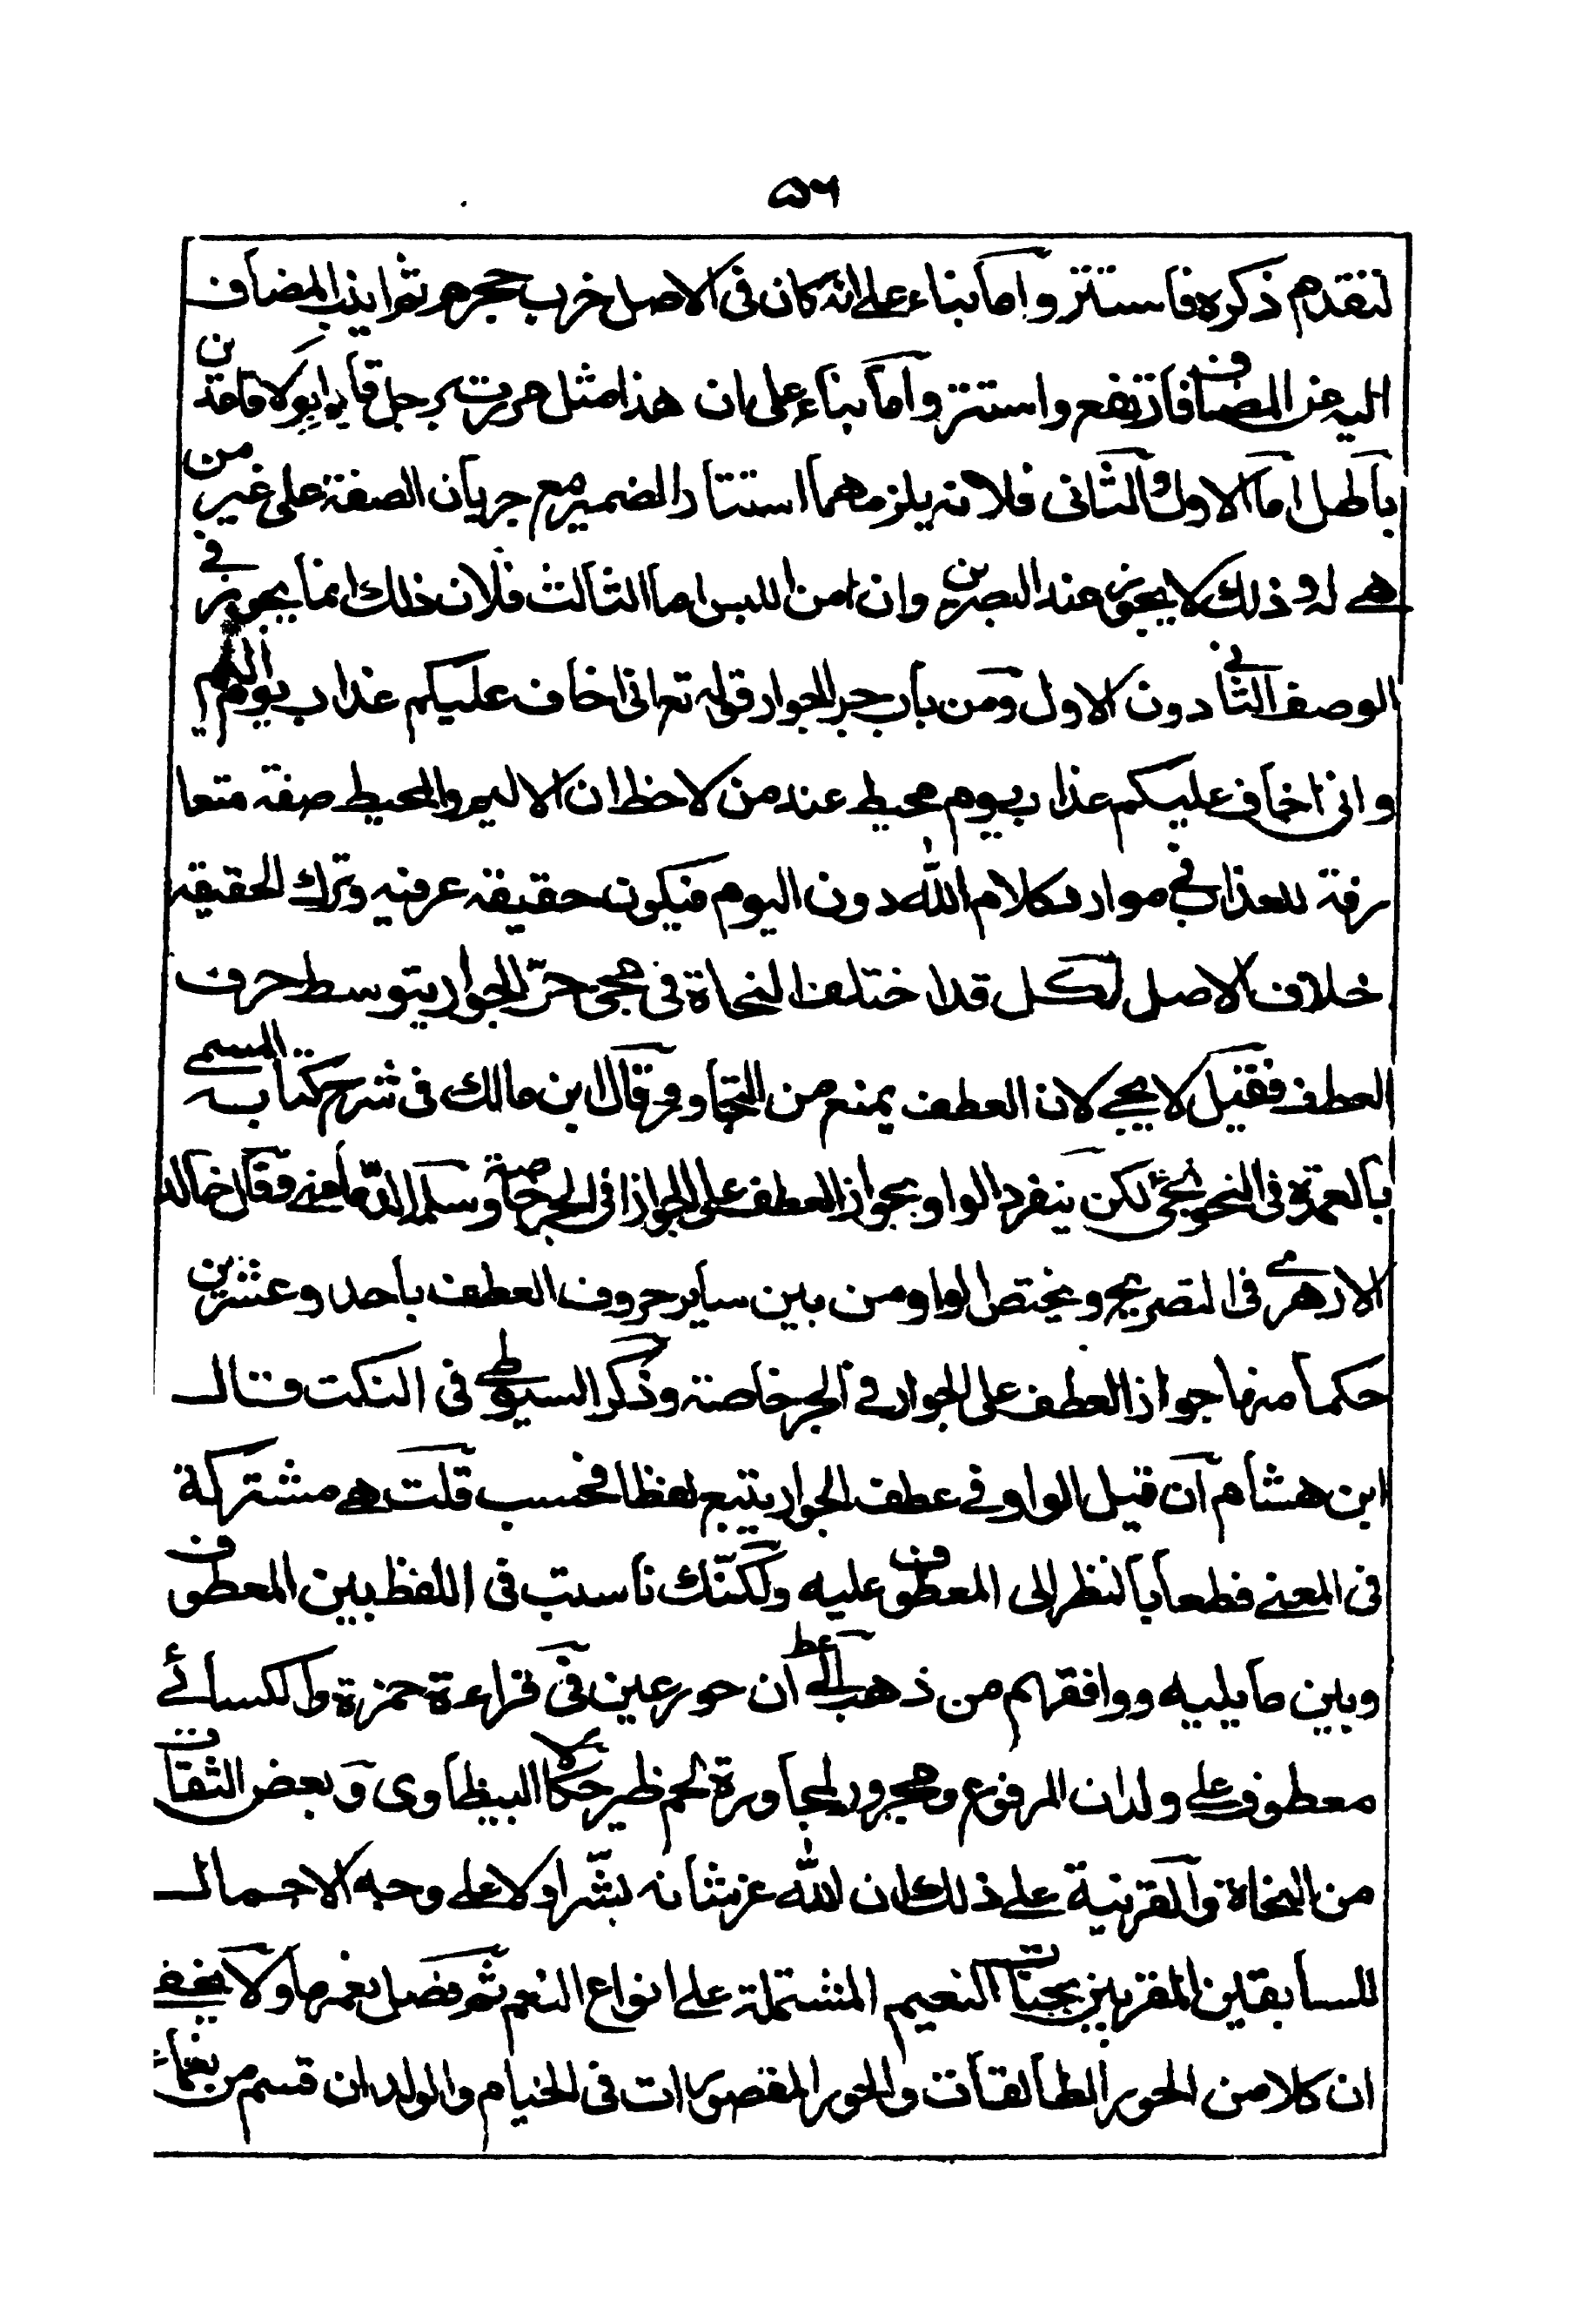 ۵۶
لتقدم ذكره فاستتر واما بناء على انه كان فى الاصل خرب حجره ثم انيب المضاف
اليه عن المضاف فارتفع واستتر واما بناء على ان هذا مثل مررت برجل قايم ابوه لا قاعدين
باطل اما الاول والثانى فلانه يلزمهما استتار الضمير مع جريان الصفة على غير من
هے له وذلك لا يجوز عند البصريين وان امن اللبس اما الثالث فلان ذلك انما يجوز فے
الوصف الثانے دون الاول ومن باب جر الجوار قوله تعالى اخاف عليكم عذاب يوم اليم
وانى اخاف عليكم عذاب يوم محيط عند من لاحظ ان الاليم والمحيط صفة متعا
رفة للعذاب فى موارد كلام الله دون اليوم فيكون حقيقة عرفيه وترك الحقيقه
خلاف الاصل لكل قد اختلف النحاة فى مجئ جر الجوار بتوسط حرف
العطف فقيل لا يجے لان العطف يمنع من التجاور وقال ابن مالك فى شرح كتابه المسمے
بالعمدة فى النحو يجئ لكن ينفرد الواو بجواز العطف على الجوار فى الجر خاصة وسلم الدمامينے فقال خالد
الازهرے فى التصريح ويختص الواو من بين ساير حروف العطف باحد وعشرين
حكما منها جواز العطف على الجوار فے الجر خاصة وذكر السيوطے فى النكت قال
ابن هشام ان قيل الواو فے عطف الجوار يتبع لفظا فحسب قلت هے مشتركة
فى المعنے قطعا بالنظر الى المعطوف عليه ولكنك ناسبت فى اللفظ بين المعطوف
وبين ما يليه ووافقهم من ذهب الے ان حور عين فى قراءة حمزة والكسائے
معطوف على ولدان المرفوع ومجرور لمجاورة لحم طير حكاه البيظاوى وبعض الثقات
من النحاة والقرنية على ذلك ان الله عز شانه بشر اولا على وجه الاجمال
للسابقين المقربين بجنات النعيم المشتملة على انواع النعم ثم فصل نعمها ولا يخفے
ان كلا من الحور الطالقات والحور المقصورات فى الخيام والولدان قسم من